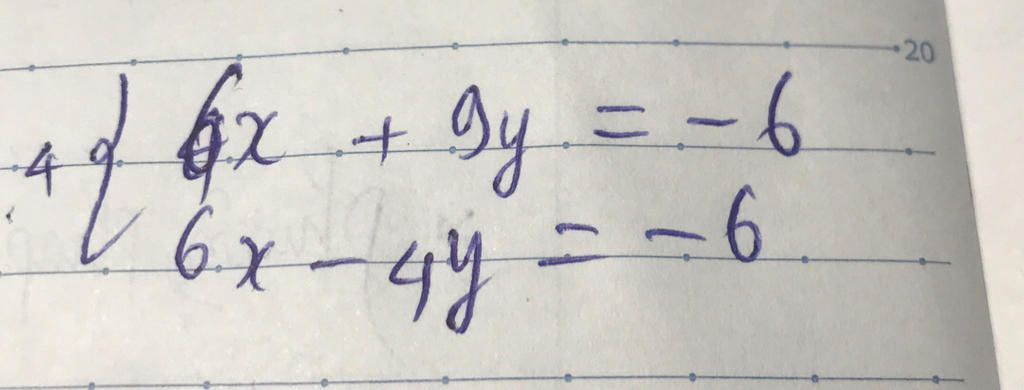 20
4 { 6x + 9y = -6
6x - 4y = -6